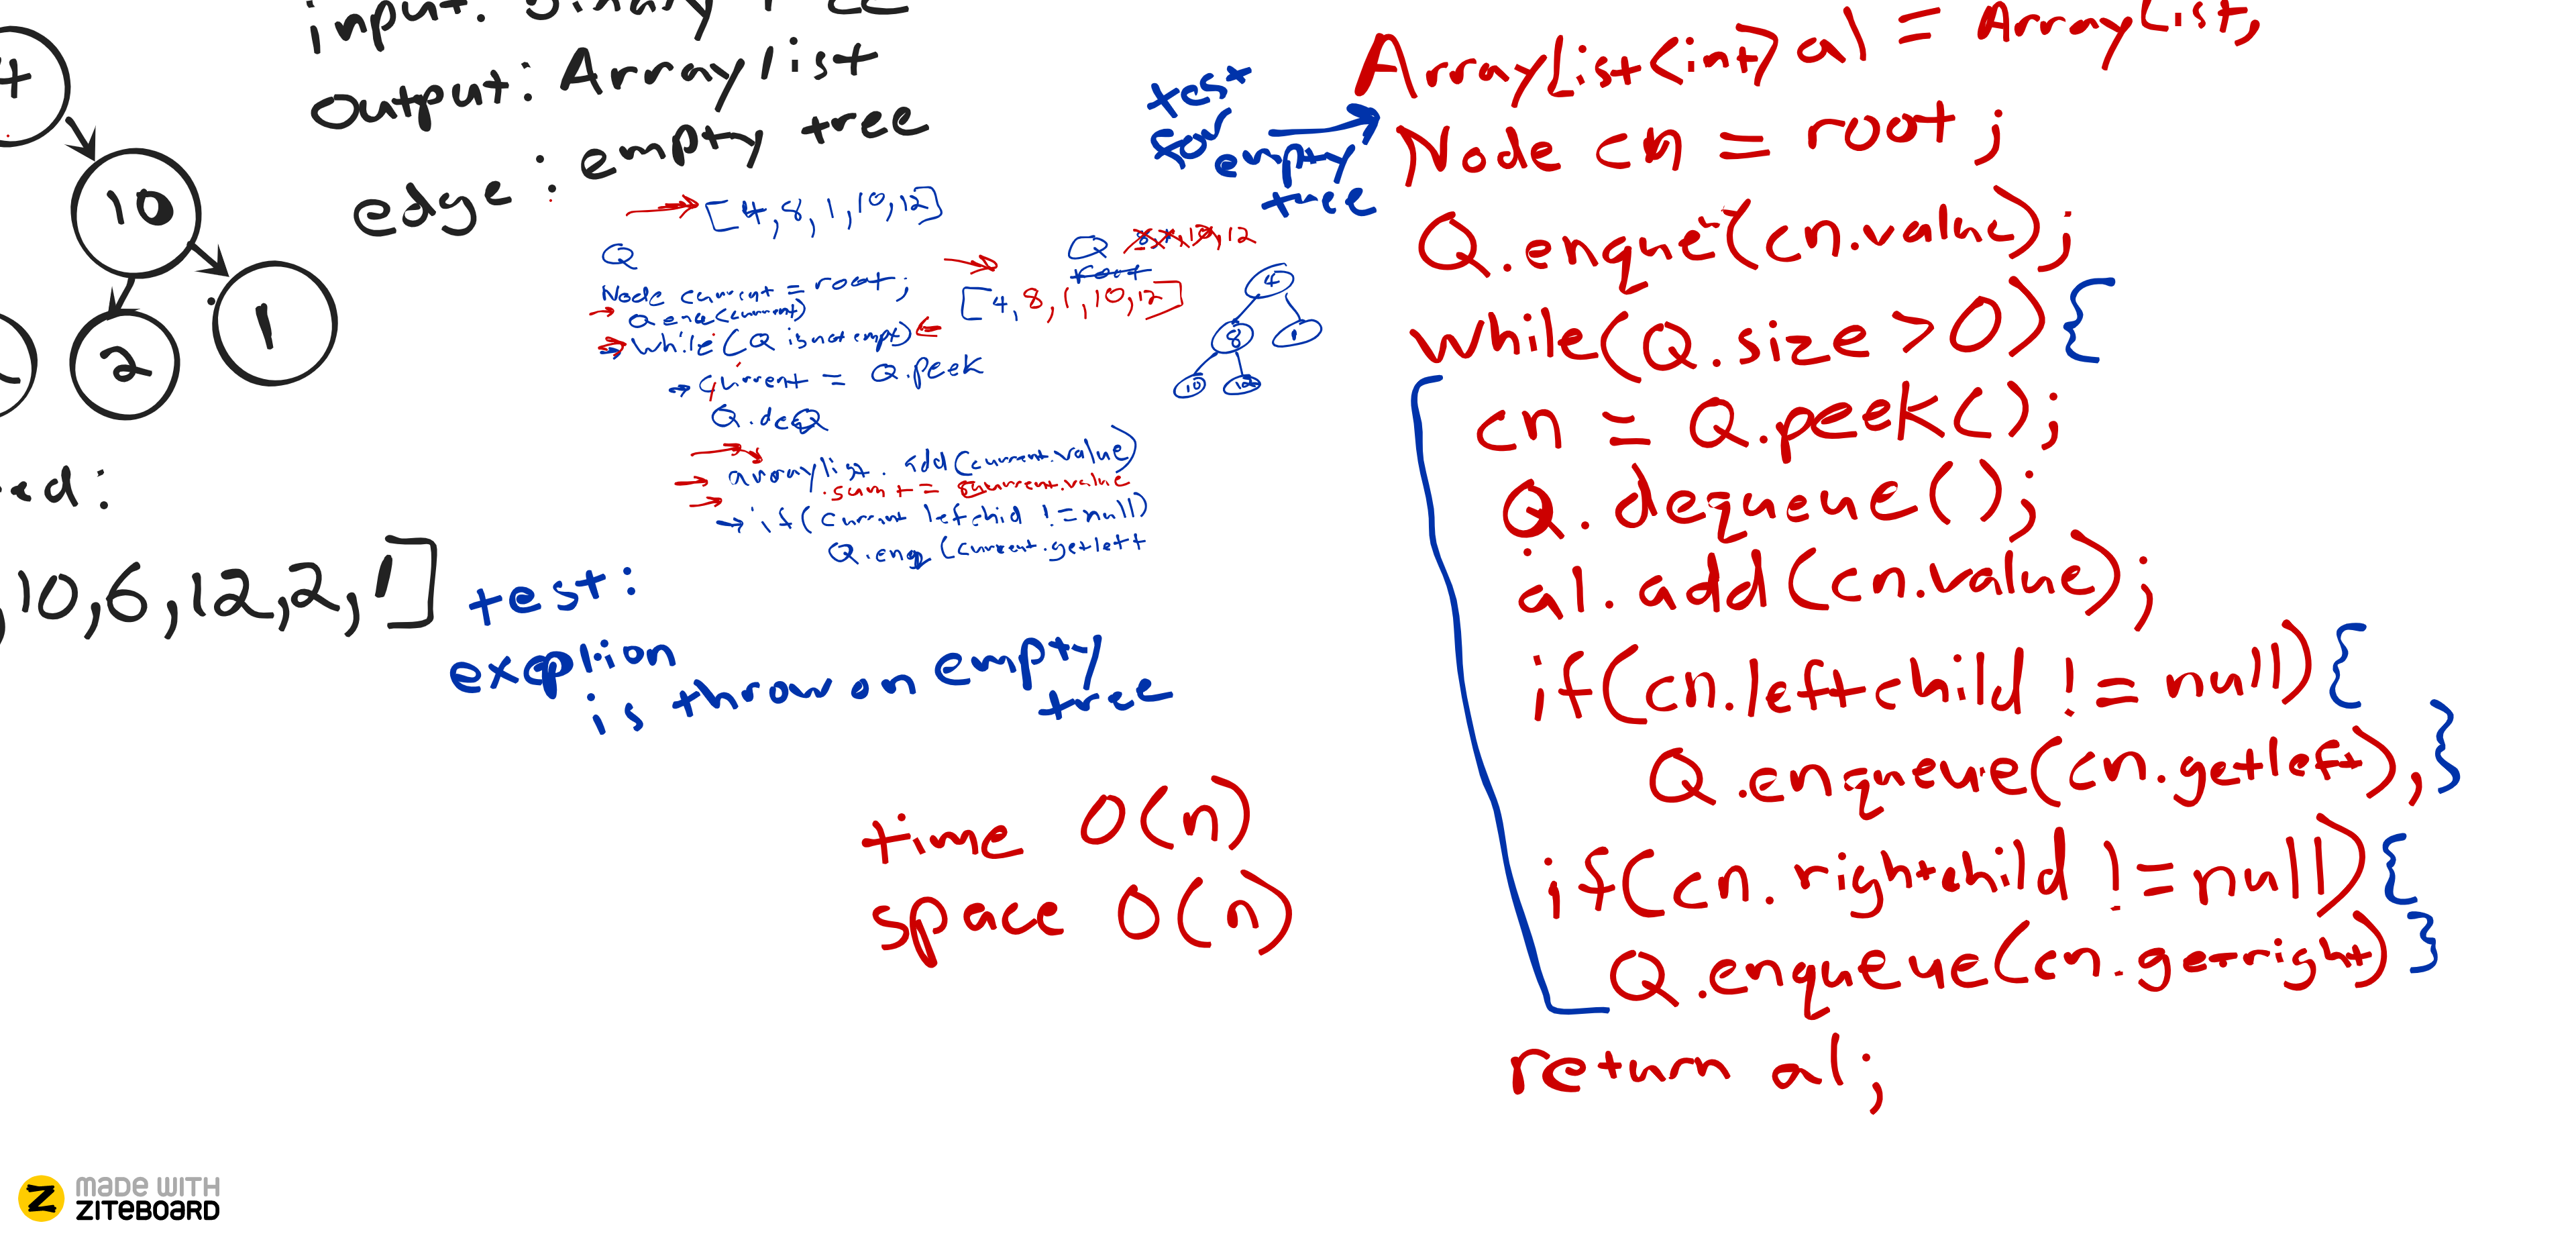 output: Arraylist
edge: empty tree
4
10
2
1
ed:
10,6,12,2,1]
[4,8,1,10,12]
Q
Node current = root;
Q enq(current)
while (Q is not empt)
current = Q.peek
Q.deQ
arraylist.add(current.value)
.sum += current.value
if(current lefchid != null)
Q.enq(current.getleft
Q 8,1,10,12
root
[4,8,1,10,12]
4
8
1
10
12
test:
exeption
is throw on empty
tree
time O(n)
space O(n)
test
for
empty
tree
ArrayList<int> al = ArrayList,
Node cn = root;
Q.enque(cn.value);
while(Q.size >0){
cn = Q.peek();
Q.dequeue();
al.add(cn.value);
if(cn.leftchild != null){
Q.enqueue(cn.getleft), }
if(cn.rightchild != null){
Q.enqueue(cn.getright) }
return al;
MADE WITH
ZITEBOARD